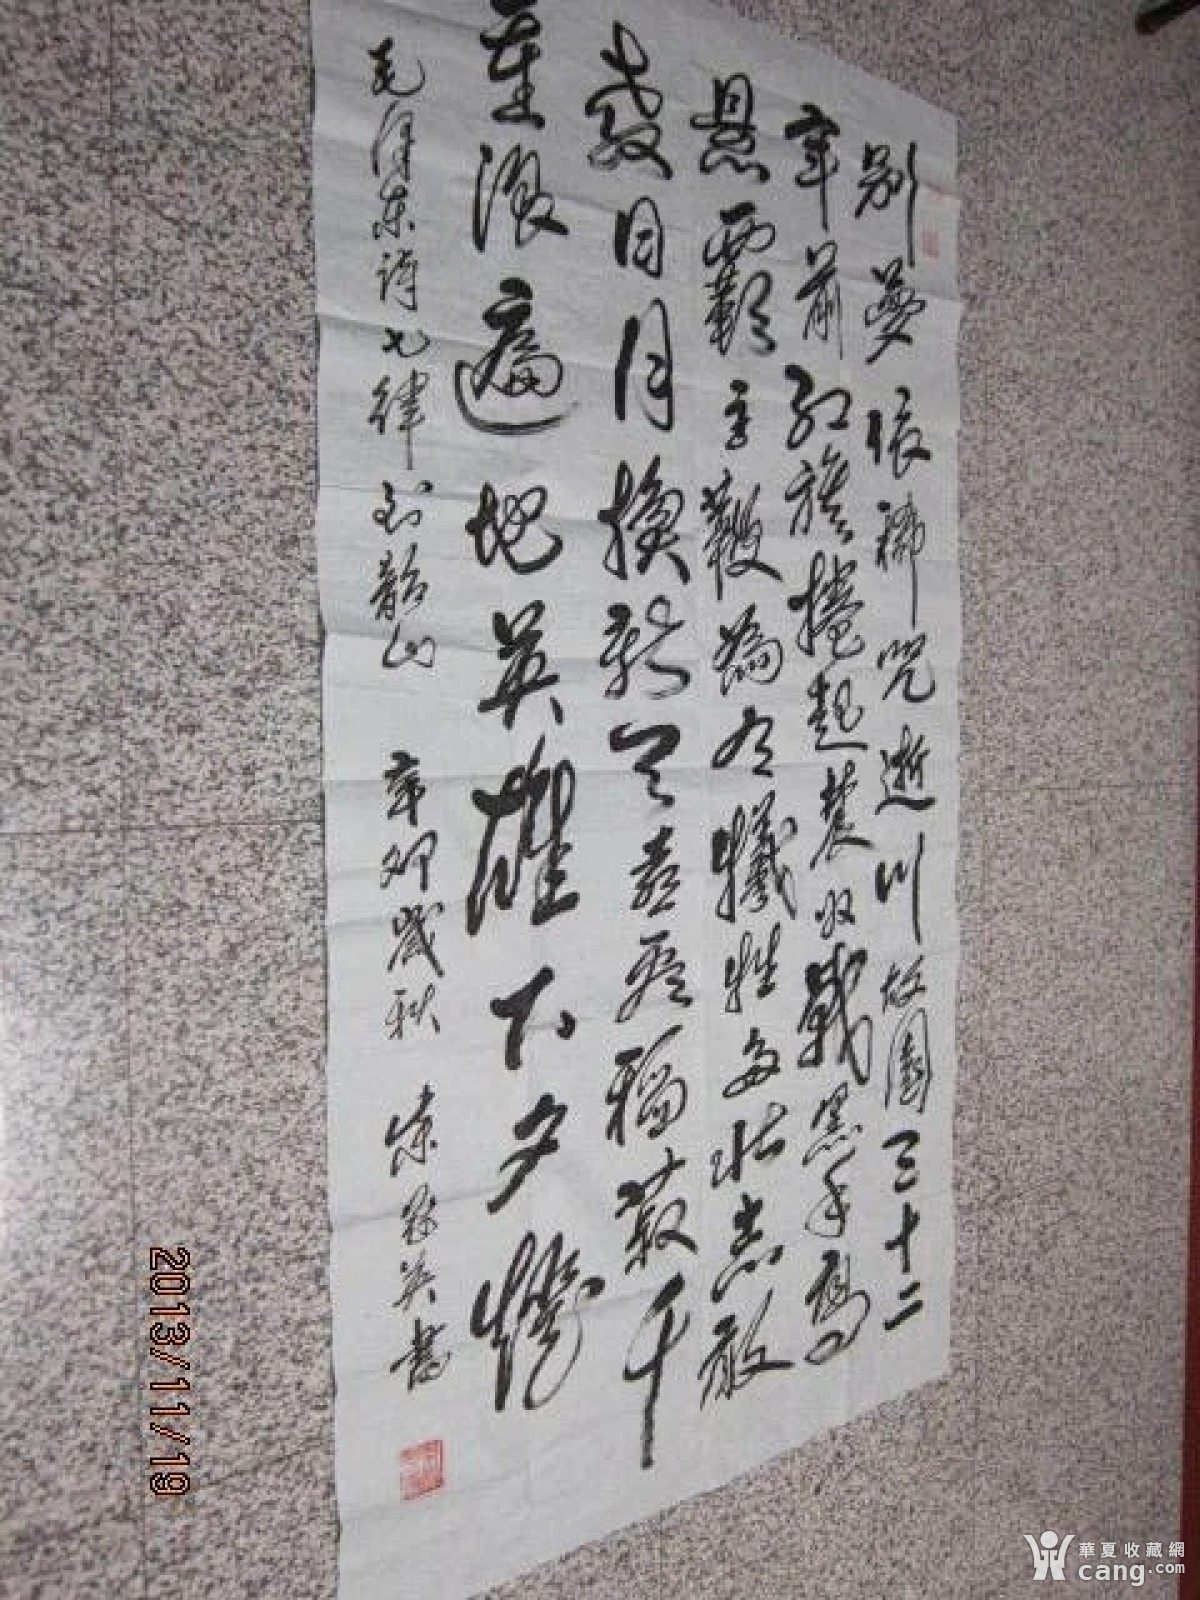 别夢依稀咒逝川故園三十二
年前红旗捲起農奴戟黑手高
悬霸主鞭為有犧牲多壮志敢
教日月換新天喜看稻菽千
重浪遍地英雄下夕煙
毛泽东诗七律到韶山 辛卯歲秋 英書
2013/11/19
華夏收藏網
cang.com